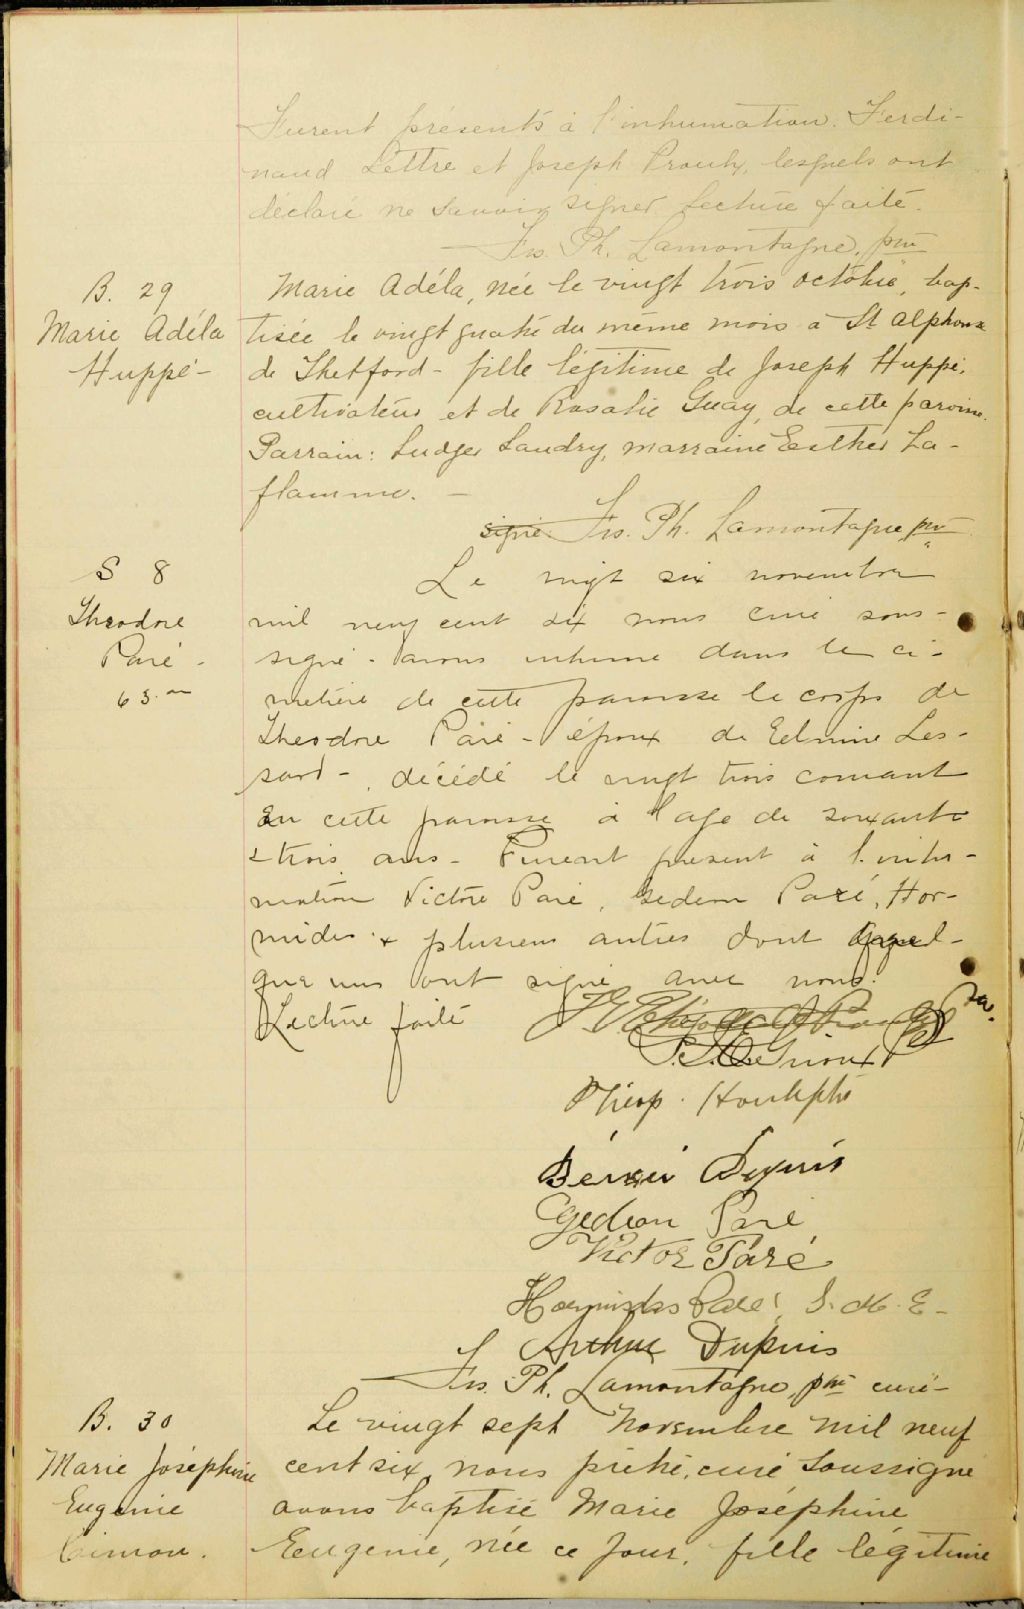 Furent présents à l'inhumation. Ferdi-
naud Lettre et Joseph Proulx, lesquels ont
déclaré ne savoir signer Lecture faite.
Frs. Ph. Lamontagne, ptre
B. 29
Marie Adéla
Huppé-
Marie Adéla, née le vingt trois octobre, bap-
tisée le vingt quatre du même mois à St Alphonse
de Thetford - fille légitime de Joseph Huppé,
cultivateur et de Rosalie Guay, de cette paroisse.
Parrain: Ludger Landry, marraine Esther La-
flamme. -
signé Frs. Ph. Lamontagne ptre
S 8
Theodore
Paré -
63 an
Le vingt six novembre
mil neuf cent six nous curé sous-
signé - avons inhumé dans le ci-
metière de cette paroisse le corps de
Theodore Paré - époux de Edmine Les-
sard -, décédé le vingt trois courant
en cette paroisse à l'age de soixante
& trois ans - Furent present à l'inhu-
mation Victore Paré, Gedeon Paré, Hor-
midas & plusieurs autres dont quel-
ques uns ont signé avec nous.
Lecture faite
Bénoni Dupuis
Gedeon Paré
Victor Paré
Hormisdas Paré, I. M. E -
Arthur Dupuis
Frs. Ph. Lamontagne, ptre curé -
B. 30
Marie Joséphine
Eugenie
Cimon.
Le vingt sept Novembre mil neuf
cent six, nous prêtre, curé Soussigné
avons baptisé Marie Joséphine
Eugenie, née ce jour, fille légitime